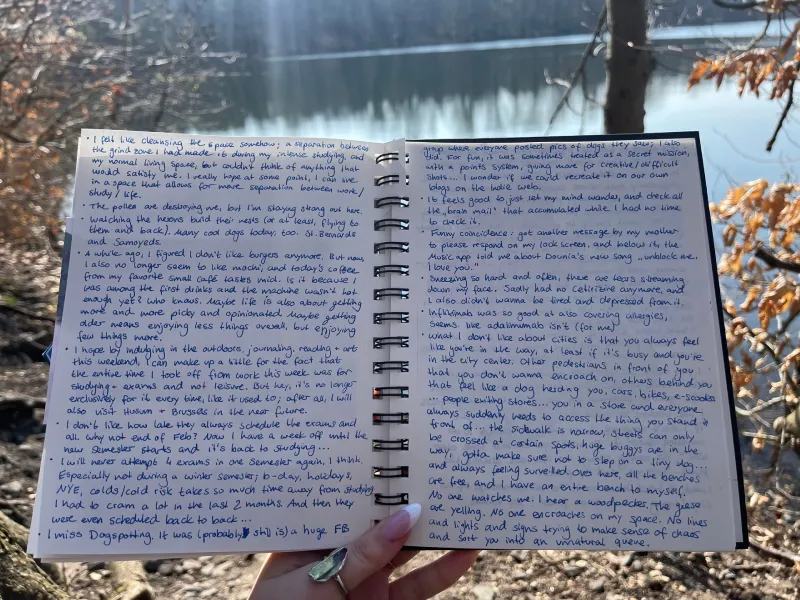 • I felt like cleansing the space somehow; a separation between
the grind zone I had made it during my intense studying, and
my normal living space, but couldn't think of anything that
would satisfy me. I really hope at some point, I can live
in a space that allows for more separation between work/
study/life.
• The pollen are destroying me, but I'm staying strong out here.
• Watching the herons build their nests (or at least, flying to
them and back). Many cool dogs today, too. St. Bernards
and Samoyeds.
• A while ago, I figured I don't like burgers anymore. But now,
I also no longer seem to like mochi, and today's coffee
from my favorite small café tastes mid. Is it because I
was among the first drinks and the machine wasn't hot
enough yet? Who knows. Maybe life is also about getting
more and more picky and opinionated. Maybe getting
older means enjoying less things overall, but enjoying
few things more.
• I hope by indulging in the outdoors, journaling, reading + art
this weekend, I can make up a little for the fact that
the entire time I took off from work this week was for
studying + exams and not leisure. But hey, it's no longer
exclusively for it every time, like it used to; after all, I will
also visit Husum + Brussels in the near future.
• I don't like how late they always schedule the exams and
all. Why not end of Feb? Now I have a week off until the
new semester starts and it's back to studying...
• I will never attempt 4 exams in one Semester again, I think.
Especially not during a winter semester; b-day, holidays,
NYE, colds/cold risk takes so much time away from studying.
I had to cram a lot in the last 2 months. And then they
were even scheduled back to back...
• I miss Dogspotting. It was (probably still is) a huge FB
group where everyone posted pics of dogs they saw; I also
did. For fun, it was sometimes treated as a secret mission,
with a points system, giving more for creative/difficult
shots... I wonder if we could recreate it on our own
blogs on the indie web.
• It feels good to just let my mind wander, and check all
the „brain mail" that accumulated while I had no time
to check it.
• Funny coincidence: got another message by my mother
to please respond on my lock screen, and below it, the
Music app told me about Dounia's new song „unblock me.
I love you."
• Sneezing so hard and often, there are tears streaming
down my face. Sadly had no Cetirizine anymore, and
I also didn't wanna be tired and depressed from it.
• Infliximab was so good at also covering allergies,
seems like adalimumab isn't (for me)
• What I don't like about cities is that you always feel
like you're in the way, at least if it's busy and you're
in the city center. Other pedestrians in front of you
that you don't wanna encroach on, others behind you
that feel like a dog herding you, cars, bikes, e-scooters
... people exiting stores... you in a store and everyone
always suddenly needs to access the thing you stand in
front of... the sidewalk is narrow, streets can only
be crossed at certain spots, huge buggys are in the
way, gotta make sure not to step on a tiny dog...
and always feeling surveilled. Over here, all the benches
are free, and I have an entire bench to myself.
No one watches me. I hear a woodpecker. The geese
are yelling. No one encroaches on my space. No lines
and lights and signs trying to make sense of chaos
and sort you into an unnatural queue.